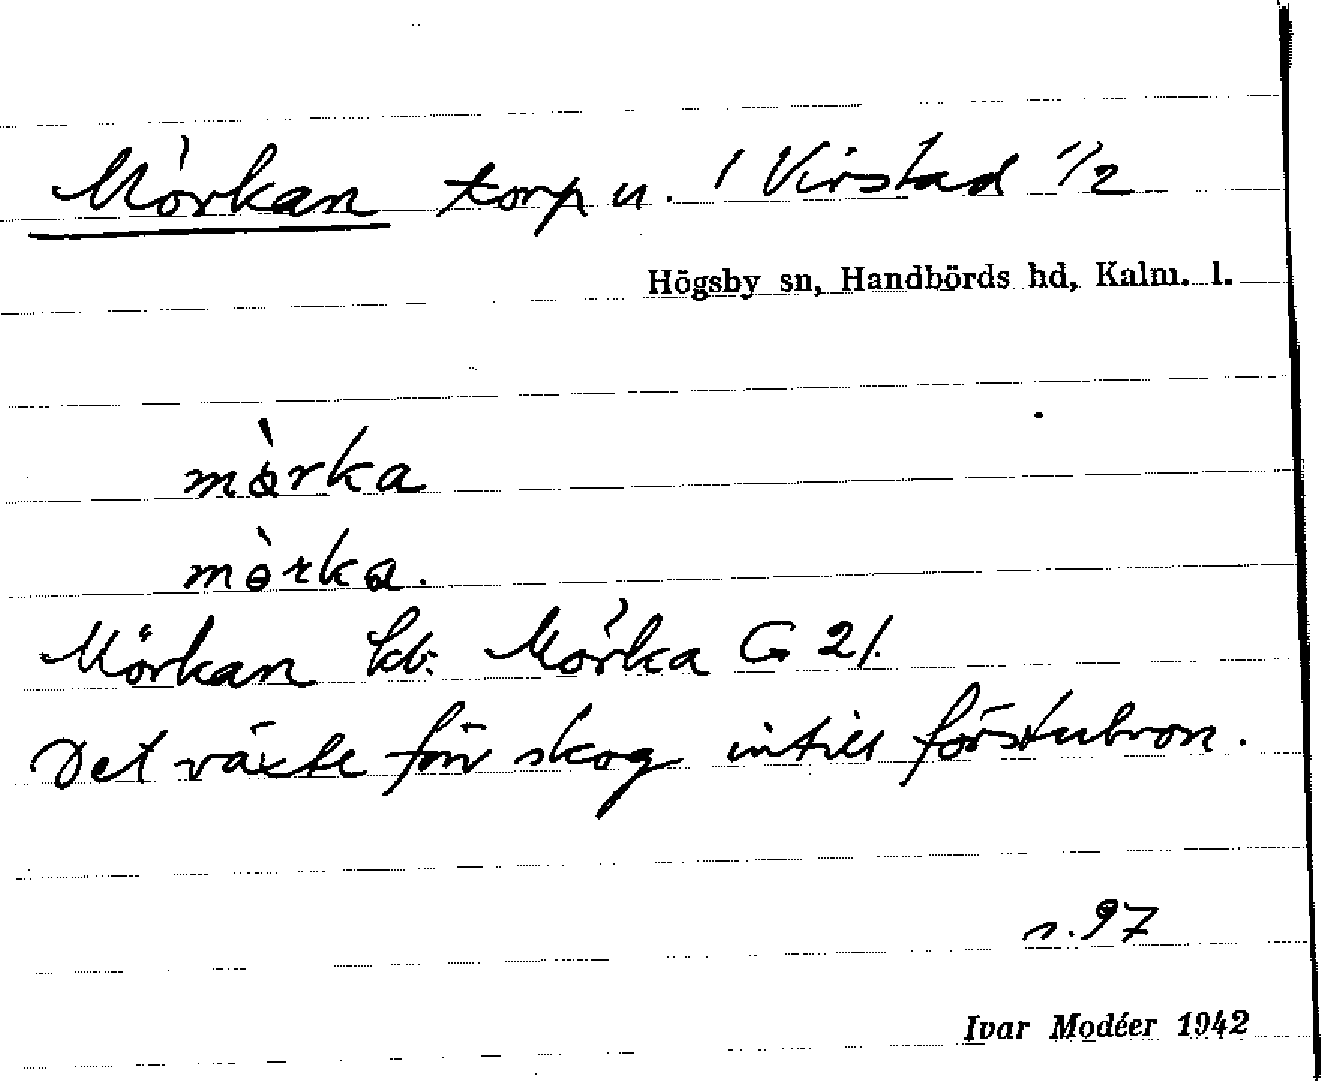 Mörkan torp u. 1 Virstad 1/2
Högsby sn, Handbörds hd, Kalm. l.
mòrka
mòrka.
Mörkan kb. Mörka G 21.
Det växte förr skog intill förstubron.
s. 97
Ivar Modéer 1942